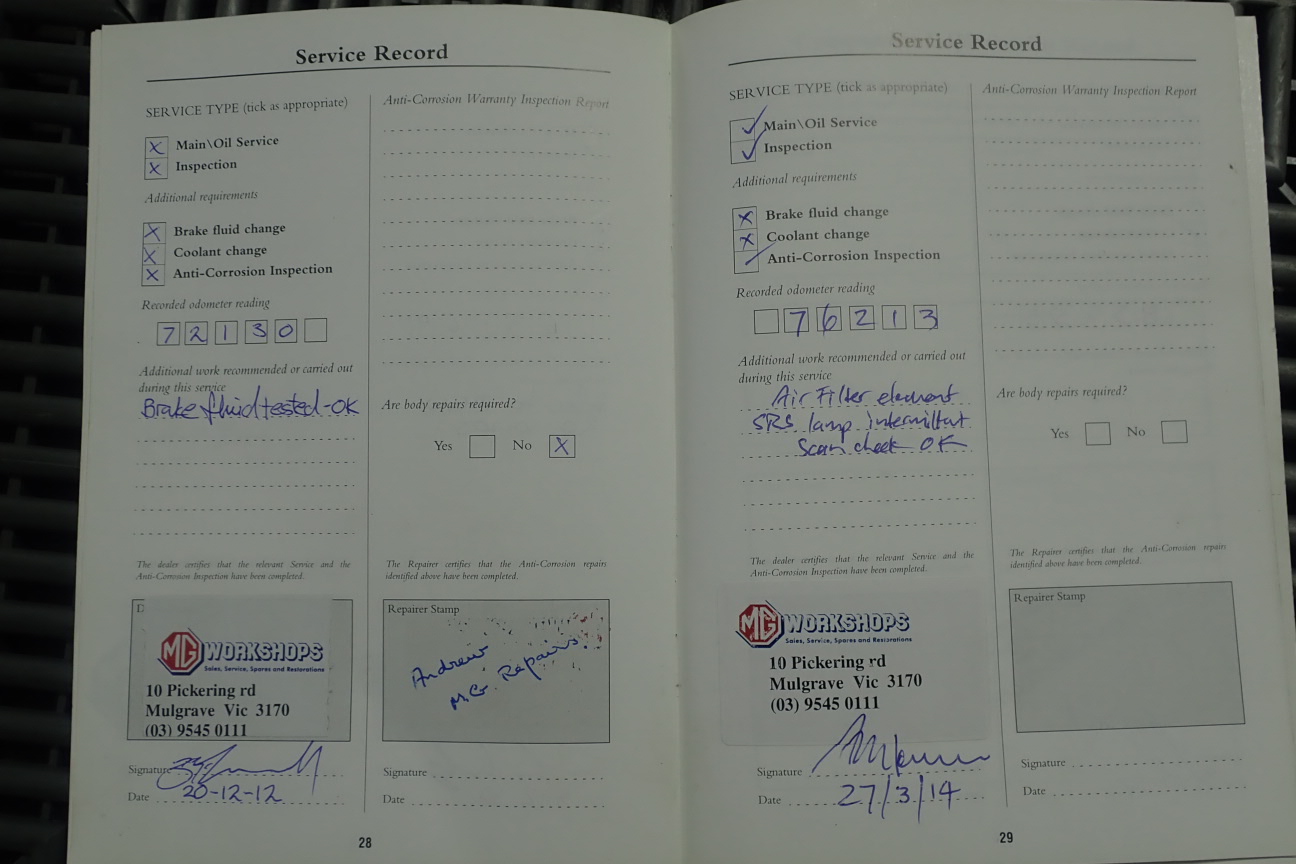 Service Record
SERVICE TYPE (tick as appropriate)
X Main\Oil Service
X Inspection
Additional requirements
X Brake fluid change
X Coolant change
X Anti-Corrosion Inspection
Recorded odometer reading
7 2 1 3 0
Additional work recommended or carried out
during this service
Brake fluid tested-OK
The dealer certifies that the relevant Service and the
Anti-Corrosion Inspection have been completed.
D
MG WORKSHOPS
Sales, Service, Spares and Restorations
10 Pickering rd
Mulgrave Vic 3170
(03) 9545 0111
Signature
Date 20-12-12
Anti-Corrosion Warranty Inspection Report
Are body repairs required?
Yes No X
The Repairer certifies that the Anti-Corrosion repairs
identified above have been completed.
Repairer Stamp
Andrew
M.G. Repairs
Signature
Date
28
Service Record
SERVICE TYPE (tick as appropriate)
✓ Main\Oil Service
✓ Inspection
Additional requirements
X Brake fluid change
X Coolant change
Anti-Corrosion Inspection
Recorded odometer reading
7 6 2 1 3
Additional work recommended or carried out
during this service
Air Filter element
SRS lamp intermittent
Scan check OK
The dealer certifies that the relevant Service and the
Anti-Corrosion Inspection have been completed.
MG WORKSHOPS
Sales, Service, Spares and Restorations
10 Pickering rd
Mulgrave Vic 3170
(03) 9545 0111
Signature
Date 27/3/14
Anti-Corrosion Warranty Inspection Report
Are body repairs required?
Yes No
The Repairer certifies that the Anti-Corrosion repairs
identified above have been completed.
Repairer Stamp
Signature
Date
29